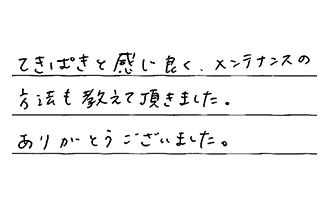 てきぱきと感じ良く、メンテナンスの
方法も教えて頂きました。
ありがとうございました。